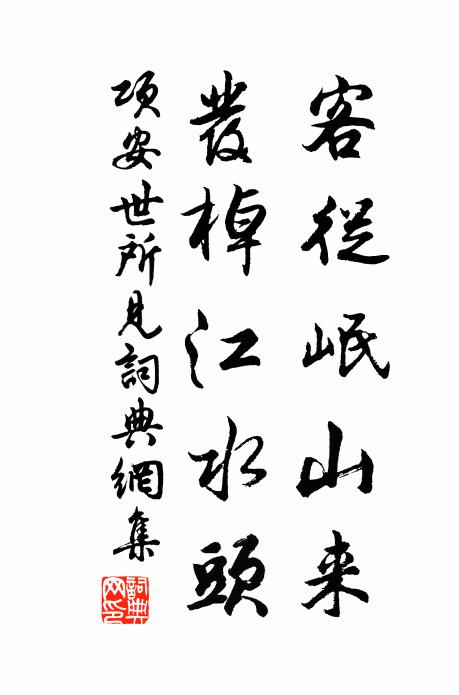 客從岷山来
發棹江水頭
項安世所見詞典網集
詞典网印